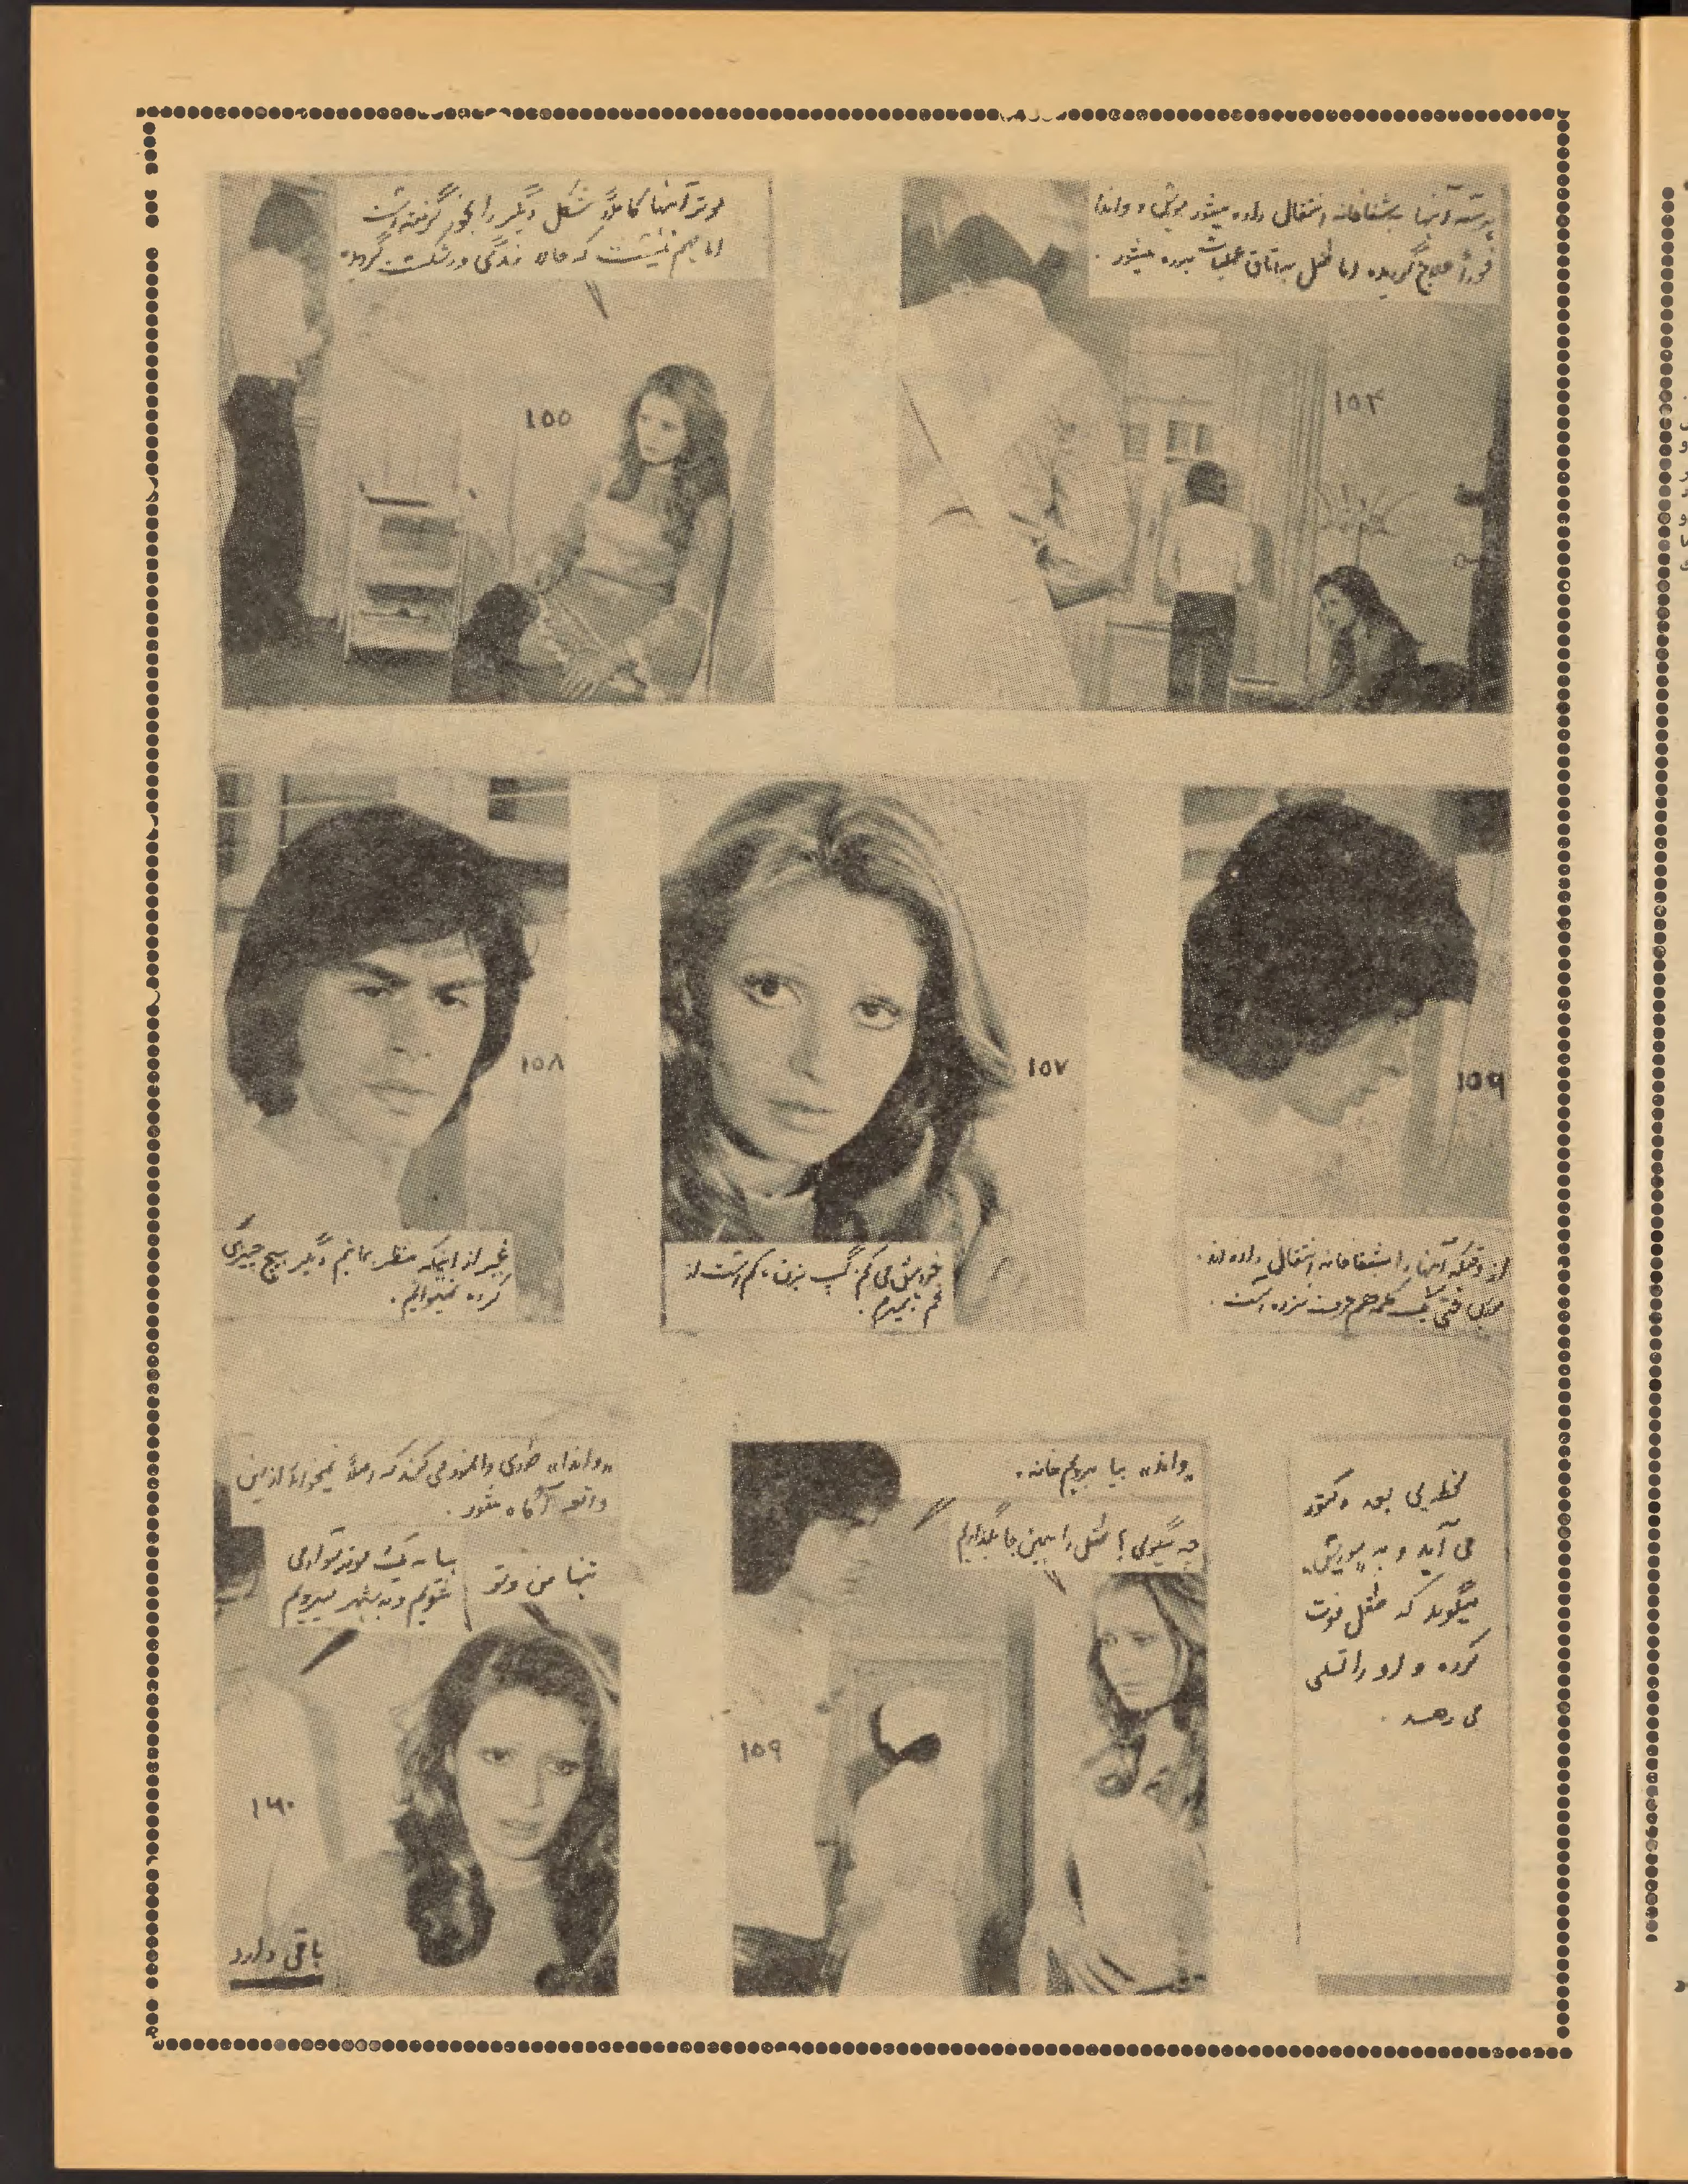 هرسه آنها بشفاخانه انتقال داده میشود موشی و واندا
فوراً علاج گردیده اما طفل به اتاق عملیات برده میشود.
۱۵۴
موتر آنها کاملاً شکل دیگر را بخود گرفته است
اما مهم نیست که مان زندگی ورشکست گردیده
۱۵۵
۱۵۹
از وقتیکه آنها را بشفاخانه انتقال داده اند.
حتی یک کلمه هم حرف نزده است.
۱۵۷
خواهش می کنم گپ بزن، کم است از
غم بمیرم.
۱۵۸
غیر از اینکه منتظر بمانیم دیگر هیچ چیزی
کرده نمیتوانیم.
لحظه یی بعد دکتور
می آید و به
میگوید که طفل فوت
کرده و او را تسلی
می دهد.
«واندا» بیا برویم خانه.
چه میگویی؟ طفل را همین جا بگذاریم
۱۵۹
«واندا» طوری وانمود می کند که اصلاً نمیخواهد ازین
واقعه آگاه شود.
تنها من و تو
بیا به یک موتر سوار می
شویم و به شهر میرویم
۱۶۰
باقی دارد